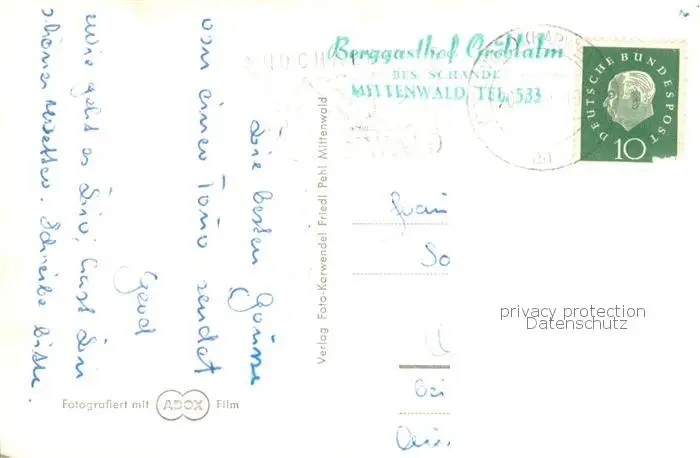 Berggasthof Gröblalm
BES. SCHANDE
MITTENWALD, TEL. 533
DEUTSCHE BUNDESPOST
10
Die besten Grüsse
von einer Tour sendet
Gerd
Wie geht es Dir, hast Du
schönes Wetter. Schreibe bitte.
Verlag Foto-Karwendel Friedl Pehl Mittenwald
Frau
So
bei
privacy protection
Datenschutz
Fotografiert mit ADOX Film